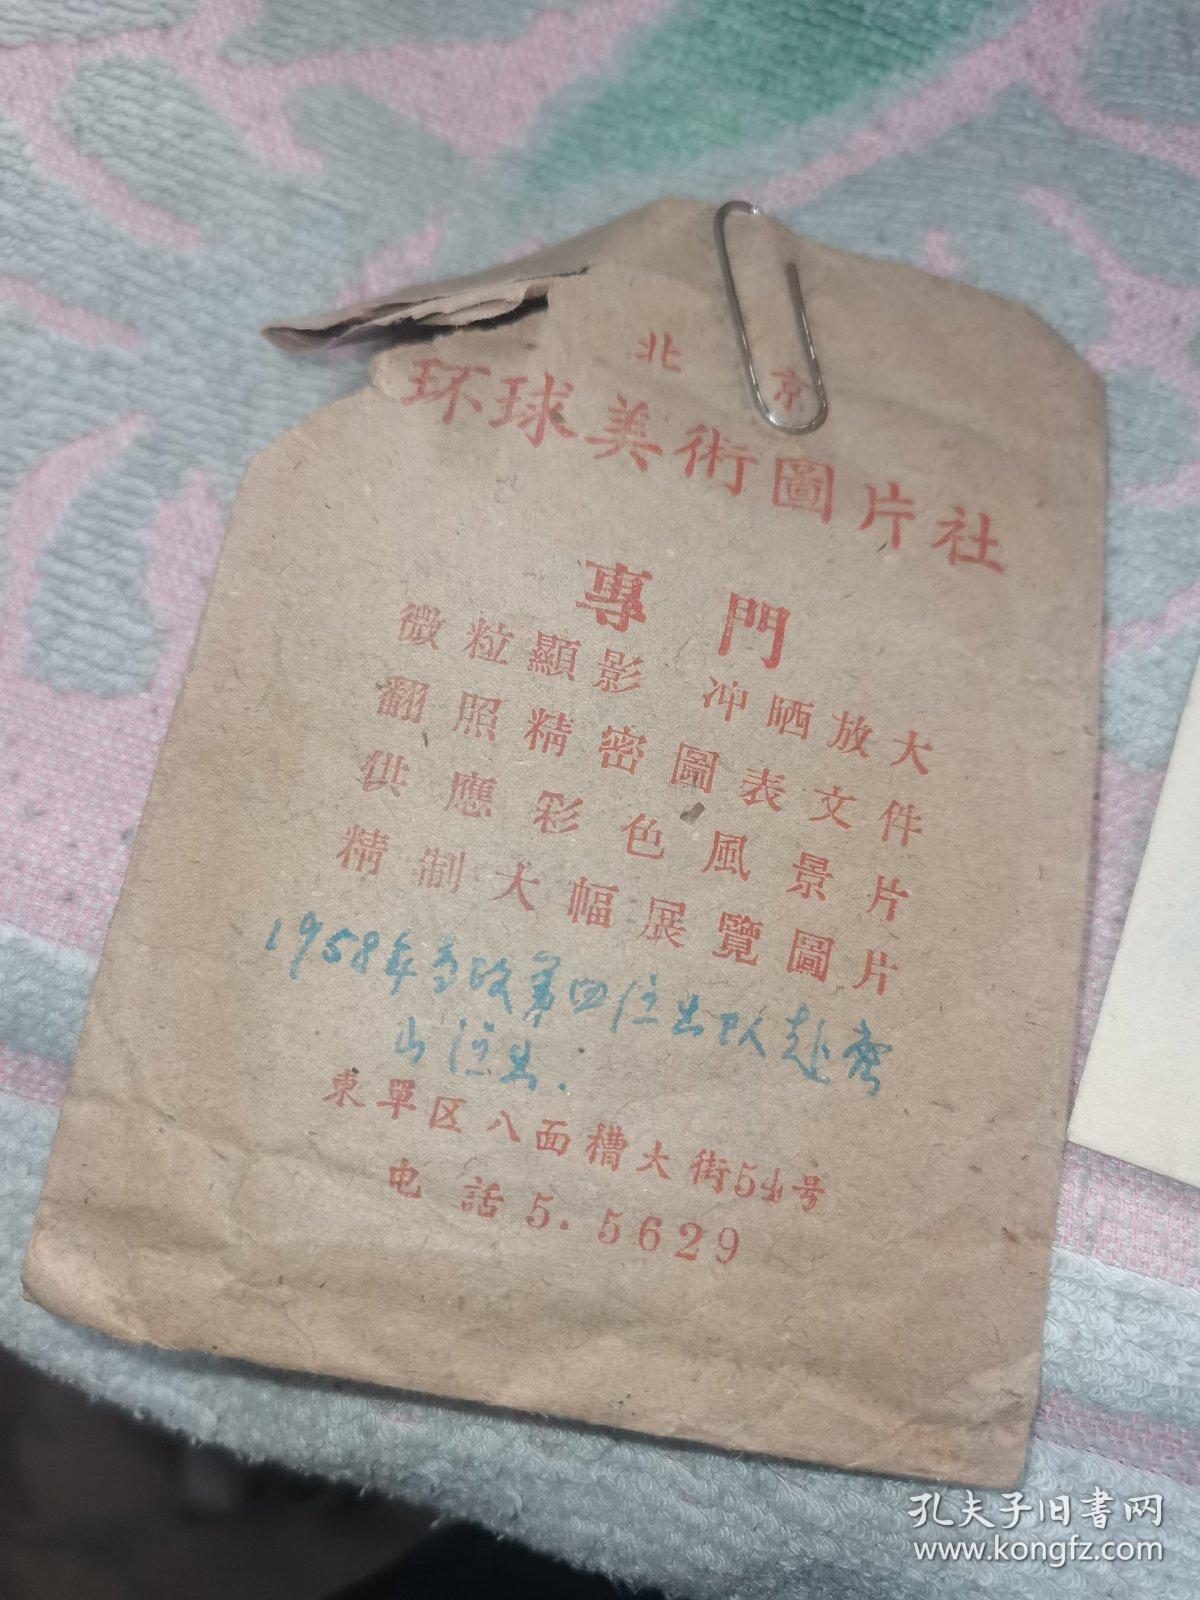 北京
环球美術圖片社
專門
微粒顯影 冲晒放大
翻照精密圖表文件
供應彩色風景片
精制大幅展覽圖片
1958年
第四
出队赴
山
東單区八面槽大街54号
电話5.5629
孔夫子旧书网
www.kongfz.com